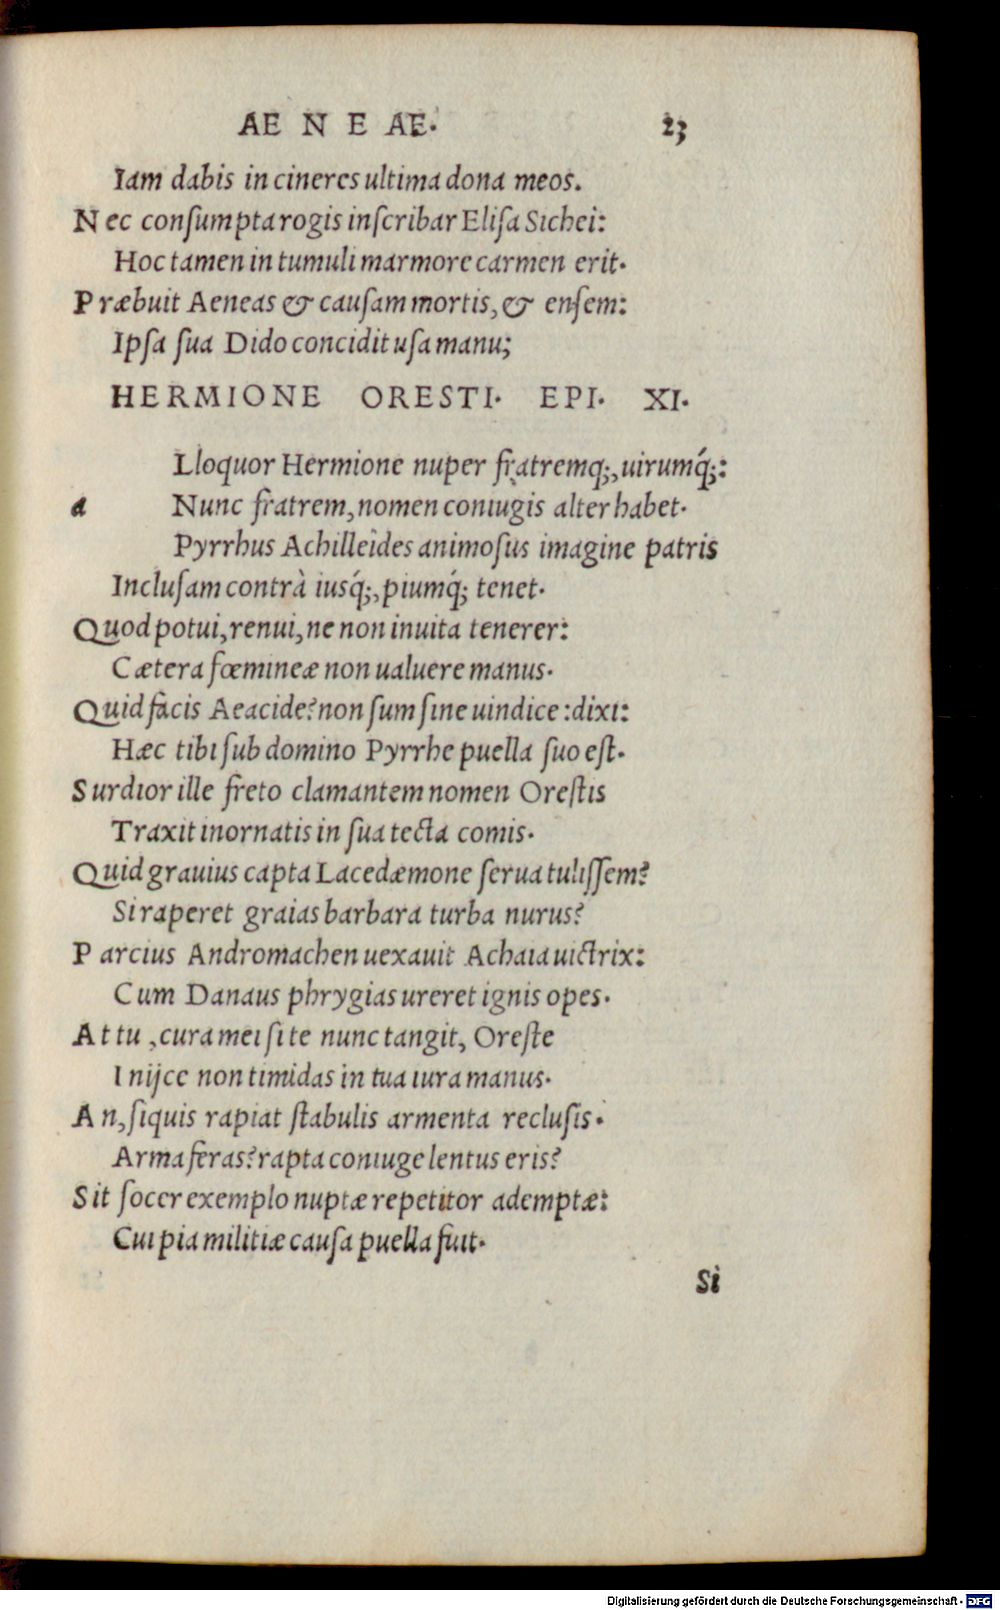 AENEAE. 23
Iam dabis in cineres ultima dona meos.
Nec consumpta rogis inscribar Elisa Sichei:
Hoc tamen in tumuli marmore carmen erit.
Præbuit Aeneas & causam mortis, & ensem:
Ipsa sua Dido concidit usa manu;
HERMIONE ORESTI. EPI. XI.
Lloquor Hermione nuper fratremq;, uirumq́;:
a Nunc fratrem, nomen coniugis alter habet.
Pyrrhus Achilleides animosus imagine patris
Inclusam contrà iusq́;, piumq́; tenet.
Quod potui, renui, ne non inuita tenerer:
Cætera fœmineæ non ualuere manus.
Quid facis Aeacide? non sum sine uindice: dixi:
Hæc tibi sub domino Pyrrhe puella suo est.
Surdior ille freto clamantem nomen Orestis
Traxit inornatis in sua tecta comis.
Quid grauius capta Lacedæmone serua tulissem?
Si raperet graias barbara turba nurus?
Parcius Andromachen uexauit Achaia uictrix:
Cum Danaus phrygias ureret ignis opes.
At tu, cura mei si te nunc tangit, Oreste
Inijce non timidas in tua iura manus.
An, siquis rapiat stabulis armenta reclusis.
Arma feras? rapta coniuge lentus eris?
Sit socer exemplo nuptæ repetitor ademptæ:
Cui pia militiæ causa puella fuit.
Si
Digitalisierung gefördert durch die Deutsche Forschungsgemeinschaft - DFG